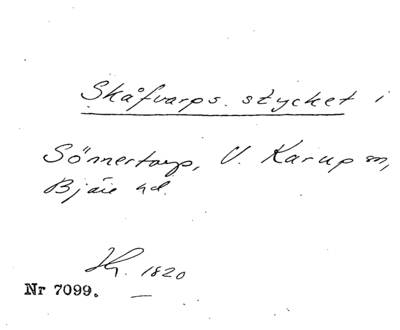 Skåfvarps. stycket i
Sönnertorp, V. Karup sn,
Bjäre hd.
1820
Nr 7099.